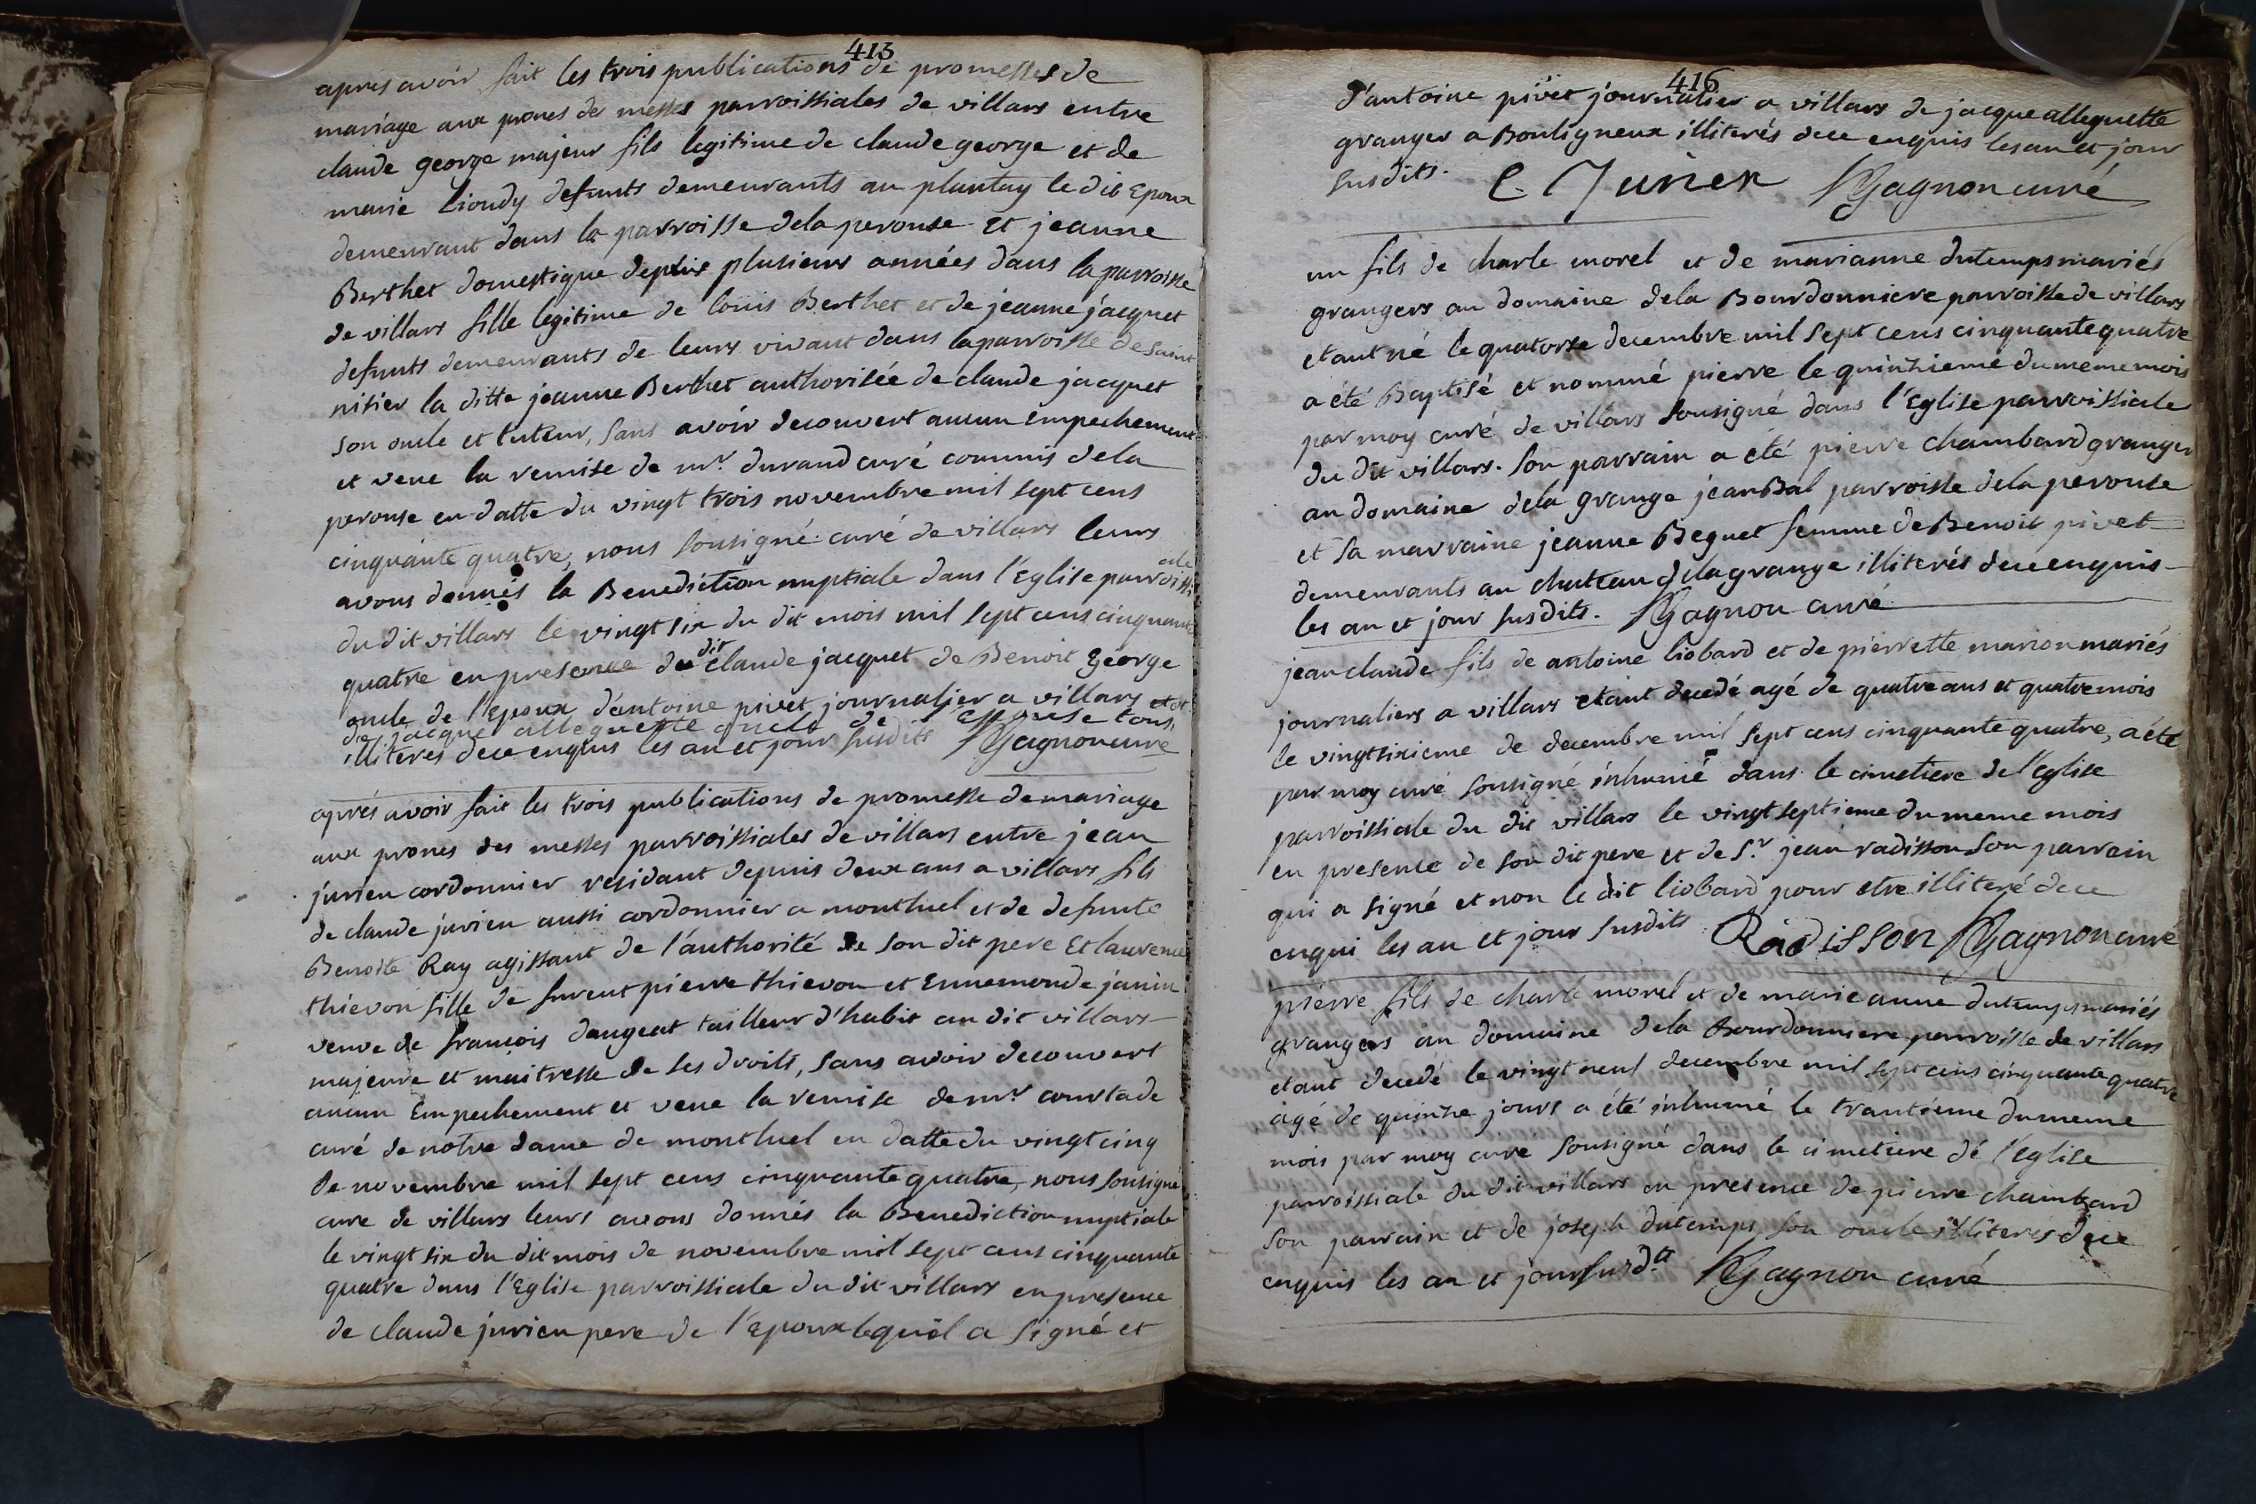 413
apres avoir fait les trois publications de promesses de
mariage aux prones des messes parroissiales de villars entre
claude george majeur fils legitime de claude george et de
marie Lioudy defunts demeurants au plantay le dit Epoux
demeurant dans la parroisse dela perouse et jeanne
Berthet domestique depuis plusieurs années dans la parroisse
de villars fille legitime de loüis Berthet et de jeanne jacquet
defunts demeurants de leurs vivant dans laparroisse de saint
nisier la ditte jeanne Berthet authorisée de claude jacquet
son oncle et tuteur, sans avoir decouvert aucun empechement
et veue la remise de mr. durand curé commis dela
perouse en datte du vingt trois novembre mil sept cens
cinquante quatre, nous sousigné curé de villars leurs
avons donnés la Benediction nuptiale dans l'Eglise parroissiale
du dit villars le vingt six du dit mois mil sept cens cinquante
quatre en presence du dit claude jacquet de Benoit George
oncle de l'Epoux d'antoine pivet journalier a villars et
de jacque alleguette oncle de l'Epouse tous
illiteres dece enquis les an et jour susdits Gagnon curé
aprés avoir fait les trois publications de promesse de mariage
aux prones des messes parroissiales de villars entre jean
jurieu cordonnier residant depuis deux ans a villars fils
de claude jurieu aussi cordonnier a montluel et de defunte
Benoite Ray agissant de l'authorité de son dit pere Et laurence
thievon fille de furent pierre thievon et Ennemonde janin
veuve de françois daugeat tailleur d'habit au dit villars
majeure et maitresse de ses droits, sans avoir decouvert
aucun Empechement et veue la remise de mr courtade
curé de notre dame de montluel en datte du vingt cinq
de novembre mil sept cens cinquante quatre, nous sousigné
curé de villars leurs avons donnés la Benediction nuptiale
le vingt six du dit mois de novembre mil sept cens cinquante
quatre dans l'Eglise parroissiale du dit villars en presence
de claude jurieu pere de l'epoux lequel a signé et
416
d'antoine pivet journalier a villars de jacque alleguette
granger a Bouligneux illiterés dece enquis les an et jour
susdits. C Jurieu Gagnon curé
un fils de charle morel et de marianne dutemps mariés
grangers au domaine dela Bourdonniere parroisse de villars
etant né le quatorse decembre mil sept cens cinquante quatre
a été Baptisé et nommé pierre le quinzieme du meme mois
par moy curé de villars sousigné dans l'Eglise parroissiale
du dit villars. son parrain a été pierre chambard granger
au domaine dela grange jean Bal parroisse dela perouse
et sa marraine jeanne Beguet femme de Benoit pivet
demeurants au chateau dela grange illiterés dece enquis
les an et jour susdits. Gagnon curé
jean claude fils de antoine liobard et de pierrette marion mariés
journaliers a villars etant decedé agé de quatre ans et quatre mois
le vingtsixieme de decembre mil sept cens cinquante quatre, a été
par moy curé sousigné inhumé dans le cimetiere de l'eglise
parroissiale du dit villars le vingt septieme du meme mois
en presence de son dit pere et de Sr. jean radisson son parrain
qui a signé et non le dit liobard pour etre illiteré dece
enqui les an et jour susdits Radisson Gagnon curé
pierre fils de charle morel et de marie anne dutemps mariés
grangers au domaine dela Bourdonniere parroisse de villars
etant decedé le vingt neuf decembre mil sept cens cinquante quatre
agé de quinze jours a été inhumé le trantieme du meme
mois par moy curé sousigné dans le cimetiere de l'eglise
parroissiale du dit villars en presence de pierre chambard
son parrain et de joseph dutemps son oncle illiteres dece
enquis les an et jour susdts Gagnon curé